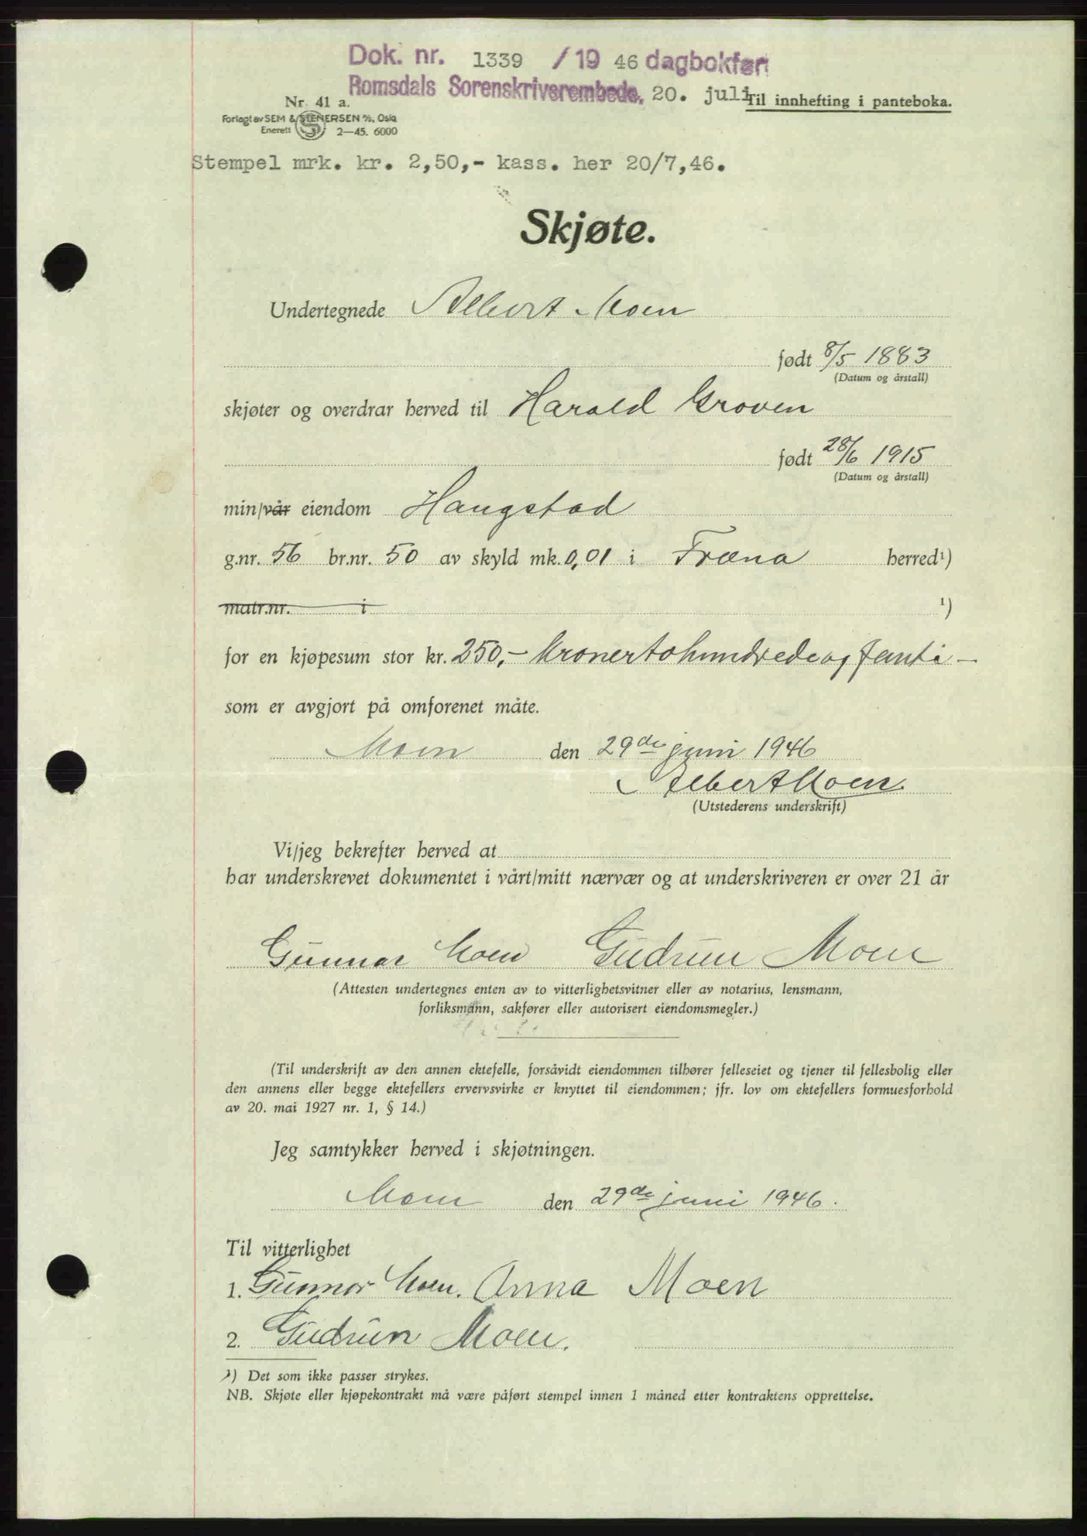 Dok. nr. 1339 /19 46 dagbokført
Romsdals Sorenskriverembede, 20. juli
Til innhefting i panteboka.
Nr. 41 a.
Forlagt av SEM & STENERSEN A/S, Oslo
Enerett S 2—45. 6000
Stempel mrk. kr. 2,50,- kass. her 20/7,46.
Skjøte.
Undertegnede Albert Moen
født 8/5 1883
(Datum og årstall)
skjøter og overdrar herved til Harald Groven
født 28/6 1915
(Datum og årstall)
min/vår eiendom Haugstad
g.nr. 56 br.nr. 50 av skyld mk. 0,01 i Fræna herred¹)
matr.nr. i ¹)
for en kjøpesum stor kr. 250,- Kronertohundredeogfemti —
som er avgjort på omforenet måte.
Moen den 29de juni 1946
Albert Moen.
(Utstederens underskrift)
Vi/jeg bekrefter herved at
har underskrevet dokumentet i vårt/mitt nærvær og at underskriveren er over 21 år
Gunnar Moen Gudrun Moen
(Attesten undertegnes enten av to vitterlighetsvitner eller av notarius, lensmann,
forliksmann, sakfører eller autorisert eiendomsmegler.)
(Til underskrift av den annen ektefelle, forsåvidt eiendommen tilhører felleseiet og tjener til fellesbolig eller
den annens eller begge ektefellers ervervsvirke er knyttet til eiendommen; jfr. lov om ektefellers formuesforhold
av 20. mai 1927 nr. 1, § 14.)
Jeg samtykker herved i skjøtningen.
Moen den 29de juni 1946.
Til vitterlighet
1. Gunnar Moen. Anna Moen
2. Gudrun Moen.
¹) Det som ikke passer strykes.
NB. Skjøte eller kjøpekontrakt må være påført stempel innen 1 måned etter kontraktens opprettelse.